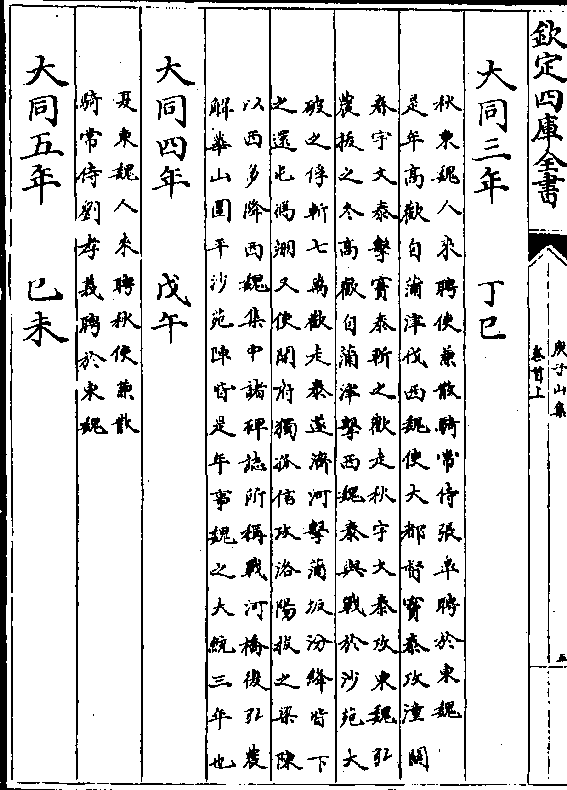 欽定四庫全書
庾子山集
卷首上
五
大同三年 丁巳
秋東魏人來聘使兼散騎常侍張皐聘於東魏
是年高歡自蒲津伐西魏使大都督竇泰攻潼關
春宇文泰擊竇泰斬之歡走秋宇文泰攻東魏弘
農拔之冬高歡自蒲津擊西魏泰與戰於沙苑大
破之俘斬七萬歡走泰遂濟河擊蒲坂汾絳皆下
之還屯馮翊又使開府獨孤信攻洛陽拔之梁陳
以西多降西魏集中諸碑誌所稱戰河橋復弘農
解華山圍平沙苑陣皆是年事魏之大統三年也
大同四年 戊午
夏東魏人來聘秋使兼散
騎常侍劉孝義聘於東魏
大同五年 己未